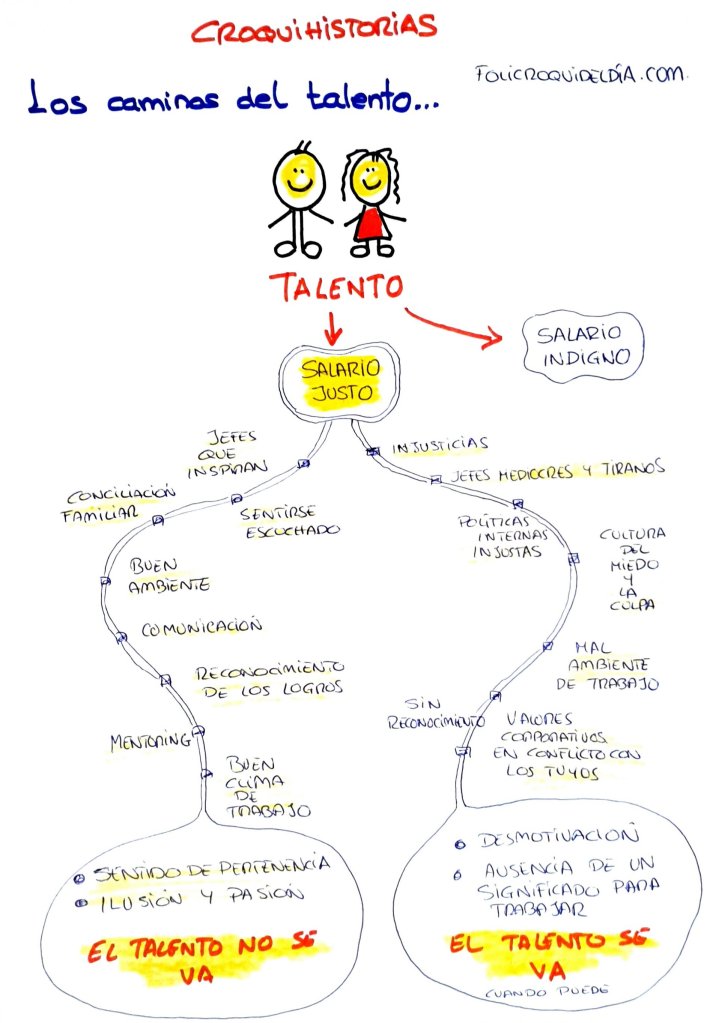 CROQUIHISTORIAS
FOLICROQUIDELDÍA.COM.
Los caminos del talento...
TALENTO
SALARIO
INDIGNO
SALARIO
JUSTO
JEFES
QUE
INSPIRAN
SENTIRSE
ESCUCHADO
CONCILIACIÓN
FAMILIAR
BUEN
AMBIENTE
COMUNICACIÓN
RECONOCIMIENTO
DE LOS LOGROS
MENTORING
BUEN
CLIMA
DE
TRABAJO
SENTIDO DE PERTENENCIA
ILUSIÓN Y PASIÓN
EL TALENTO NO SE
VA
INJUSTICIAS
JEFES MEDIOCRES Y TIRANOS
POLÍTICAS
INTERNAS
INJUSTAS
CULTURA
DEL
MIEDO
Y
LA
CULPA
MAL
AMBIENTE
DE TRABAJO
SIN
RECONOCIMIENTO
VALORES
CORPORATIVOS
EN CONFLICTO CON
LOS TUYOS
DESMOTIVACIÓN
AUSENCIA DE UN
SIGNIFICADO PARA
TRABAJAR
EL TALENTO SE
VA
CUANDO PUEDE